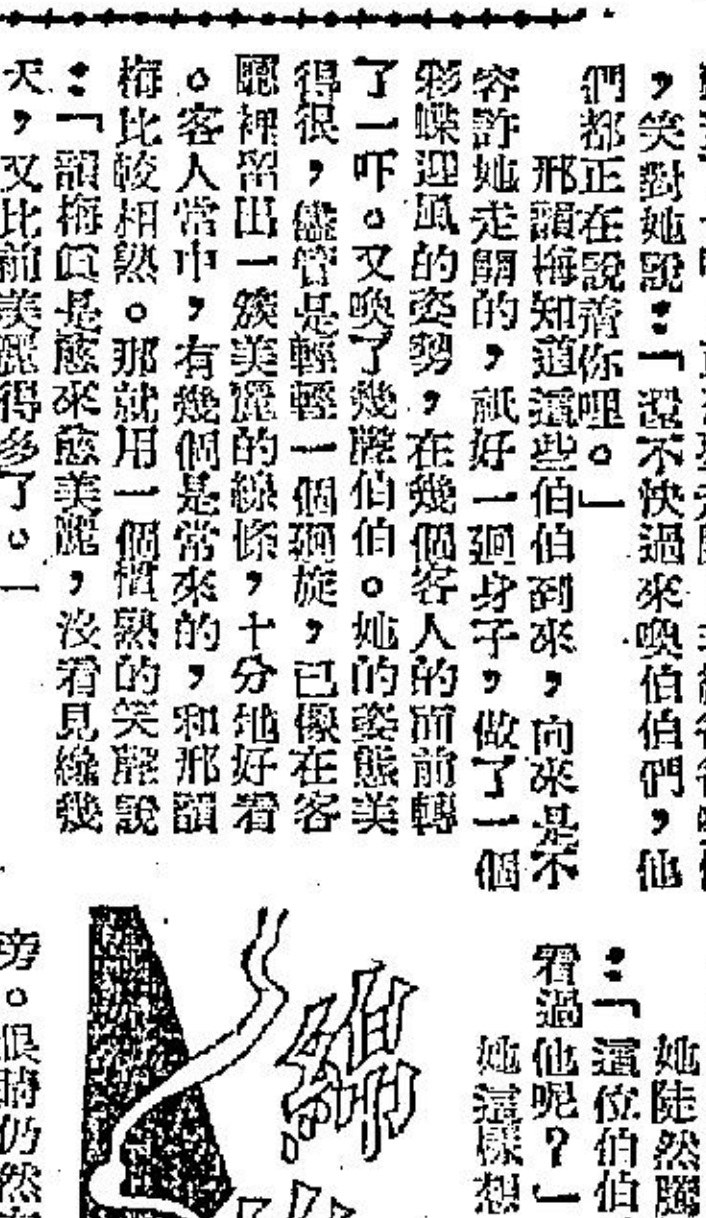 ，笑對她說：「還不快過來喚伯伯們，他
們都正在說着你哩。」
邢韻梅知道這些伯伯到來，向來是不
容許她走開的，祇好一廻身子，做了一個
彩蝶迎風的姿勢，在幾個客人的面前轉
了一吓。又喚了幾聲伯伯。她的姿態美
得很，儘管是輕輕一個廻旋，已像在客
廳裡留出一簇美麗的線條，十分地好看
。客人當中，有幾個是常來的，和邢韻
梅比較相熟。那就用一個慣熟的笑聲說
：「韻梅眞是愈來愈美麗，沒看見纔幾
天，又比前美麗得多了。」
她陡然
：「這位伯伯
看過他呢？」
她這樣想
綿
旁。但仍然